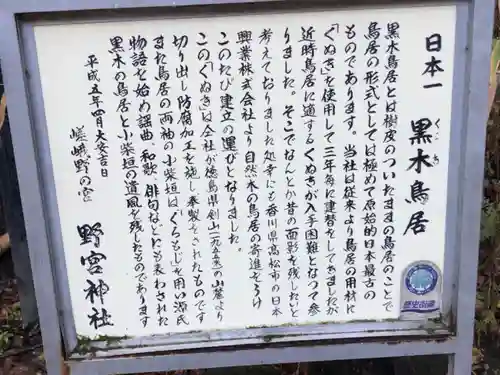 日本一 黒木鳥居
くろき
黒木鳥居とは樹皮のついたままの鳥居のことで
鳥居の形式としては極めて原始的日本最古の
ものであります。当社は従来より鳥居の用材に
「くぬぎ」を使用して三年毎に建替をしてきましたが
近時鳥居に適するくぬぎが入手困難となって参
りました。そこでなんとか昔の面影を残したいと
考えておりました処幸にも香川県高松市の日本
興業株式会社より自然木の鳥居の寄進をうけ
このたび建立の運びとなりました。
この「くぬぎ」は会社が徳島県剣山(一九五五米)の山麓より
切り出し防腐加工を施し奉製をされたものです
また鳥居の両袖の小柴垣は「くろもじ」を用い源氏
物語を始め謡曲、和歌、俳句などにも表わされた
黒木の鳥居と小柴垣の遺風を残したものであります
平成五年四月大安吉日
嵯峨野の宮 野宮神社
歴史街道